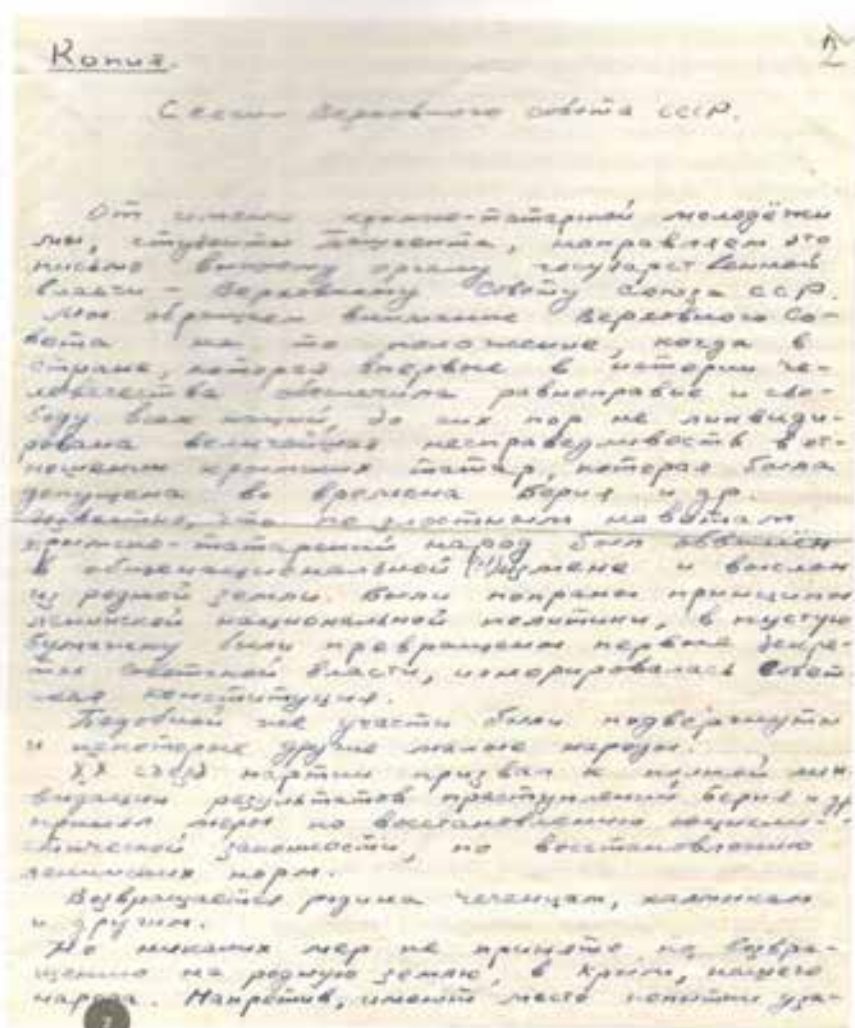 Копия.
2
Сессии Верховного Совета СССР.
От имени крымско-татарской молодёжи
мы, студенты Ташкента, направляем это
письмо высшему органу государственной
власти - Верховному Совету Союза ССР.
Мы обращаем внимание Верховного Со-
вета на то положение, когда в
стране, которая впервые в истории че-
ловечества обеспечила равноправие и сво-
боду всех наций, до сих пор не ликвиди-
рована величайшая несправедливость в от-
ношении крымских татар, которая была
допущена во времена Берия и др.
Известно, что по злостным наветам
крымско-татарский народ был обвинён
в общенациональной (?) измене и выслан
из родной земли. Были попраны принципы
ленинской национальной политики, в пустую
бумажку были превращены первые декре-
ты советской власти, игнорировалась Совет-
ская конституция.
Подобной же участи были подвергнуты
и некоторые другие малые народы.
XX съезд партии призвал к полной лик-
видации результатов преступлений Берия и др.
принял меры по восстановлению социали-
стической законности, по восстановлению
ленинских норм.
Возвращается родина чеченцам, калмыкам
и другим.
Но никаких мер не принято по возвра-
щению на родную землю, в Крым, нашего
народа. Напротив, имеют место попытки уза-
2